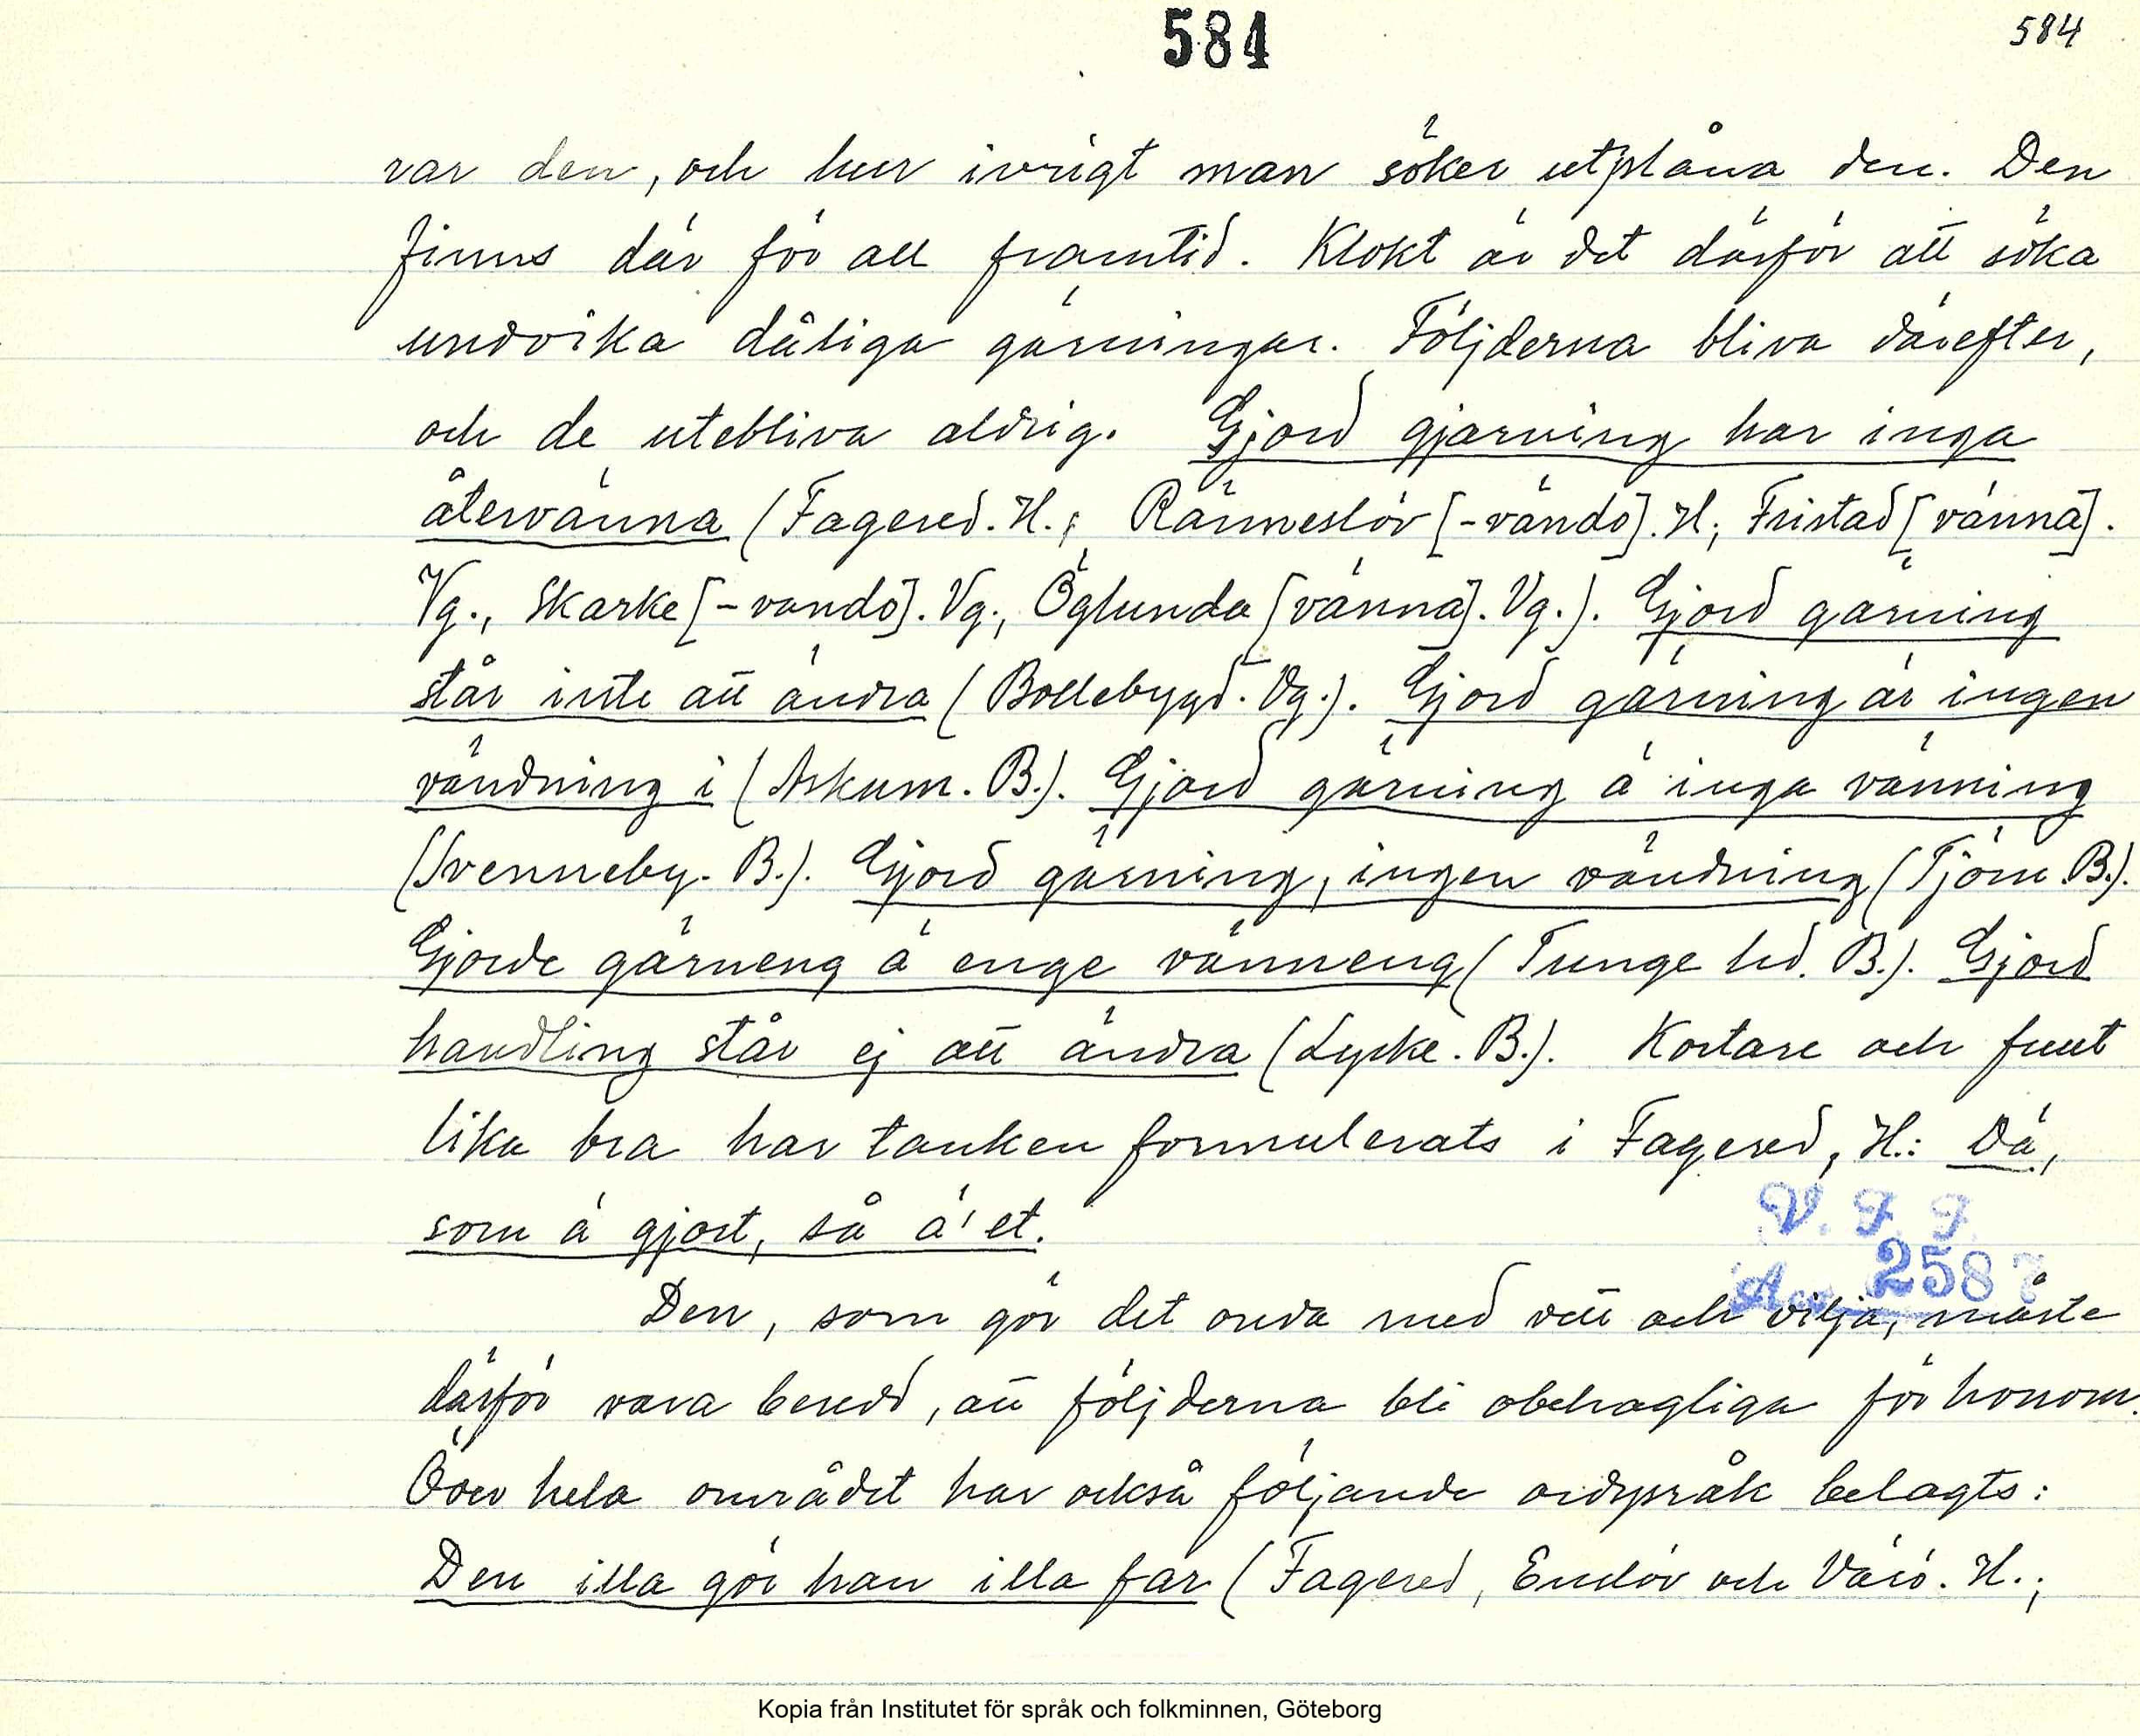 584
584
var den, och hur ivrigt man söker utplåna den. Den
finns där för all framtid. Klokt är det därför att söka
undvika dåliga gärningar. Följderna bliva därefter,
och de utebliva aldrig. Gjord gjärning har inga
återvänna (Fagered. H.; Ränneslöv [-vändö]. H; Fristad [vännä].
Vg., Skarke [-vändö]. Vg., Öglunda [vännä]. Vg.). Gjord gärning
står inte att ändra (Bollebygd. Vg.). Gjord gärning är ingen
vändning i (Askum. B.). Gjord gärning ä inga vänning
(Svenneby. B.). Gjord gärning, ingen vändning (Tjörn. B.).
Gjorde gärneng ä enge vänneng (Tunge hd. B.). Gjord
handling står ej att ändra (Lycke. B.). Kortare och fullt
lika bra har tanken formulerats i Fagered, H.: Dä,
som ä gjort, så ä' et.
V. F. F.
Acc. 2587
Den, som gör det onda med vett och vilja, måste
därför vara beredd, att följderna bli obehagliga för honom.
Över hela området har också följande ordspråk belagts:
Den illa gör han illa far (Fagered, Enslöv och Värö. H.;
Kopia från Institutet för språk och folkminnen, Göteborg